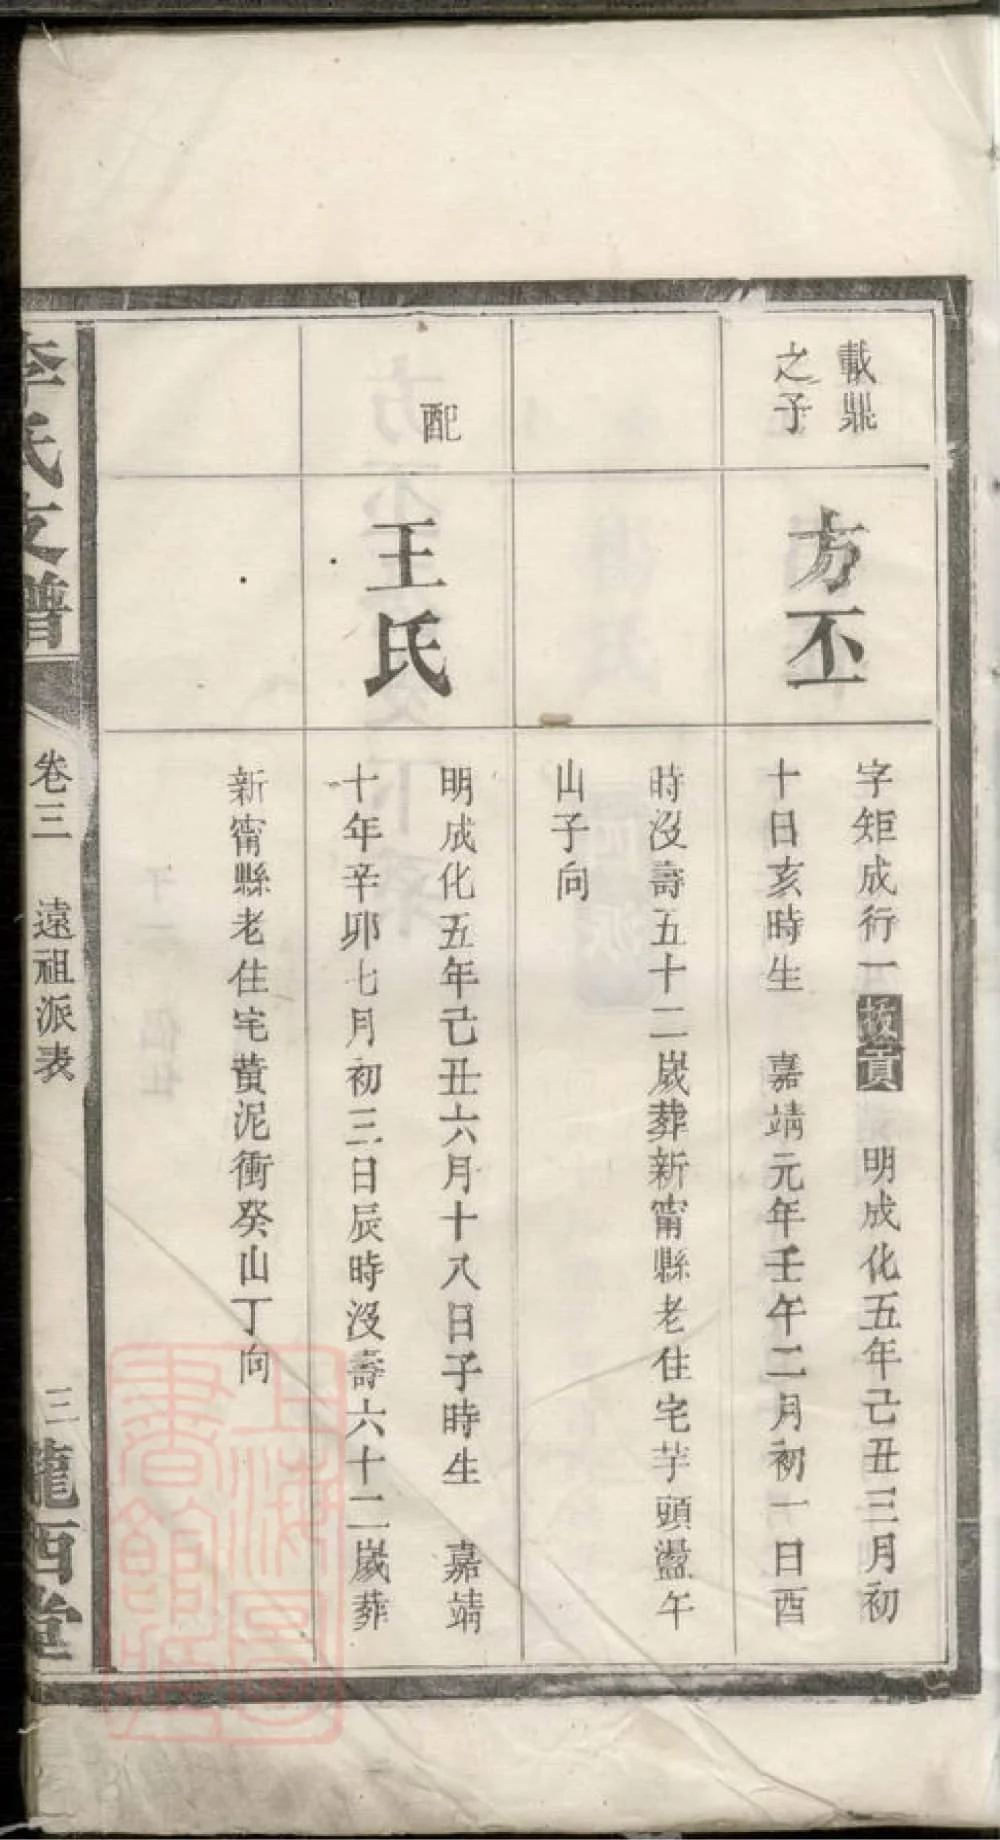 載鼎
之子
方丕
字矩成行一拔貢 明成化五年己丑三月初
十日亥時生 嘉靖元年壬午二月初一日酉
時沒壽五十二歲葬新甯縣老住宅芋頭盪午
山子向
配
王氏
明成化五年己丑六月十八日子時生 嘉靖
十年辛卯七月初三日辰時沒壽六十二歲葬
新甯縣老住宅黃泥衝癸山丁向
李氏支譜
卷三 遠祖派表
三
隴西堂
上海圖
書館藏